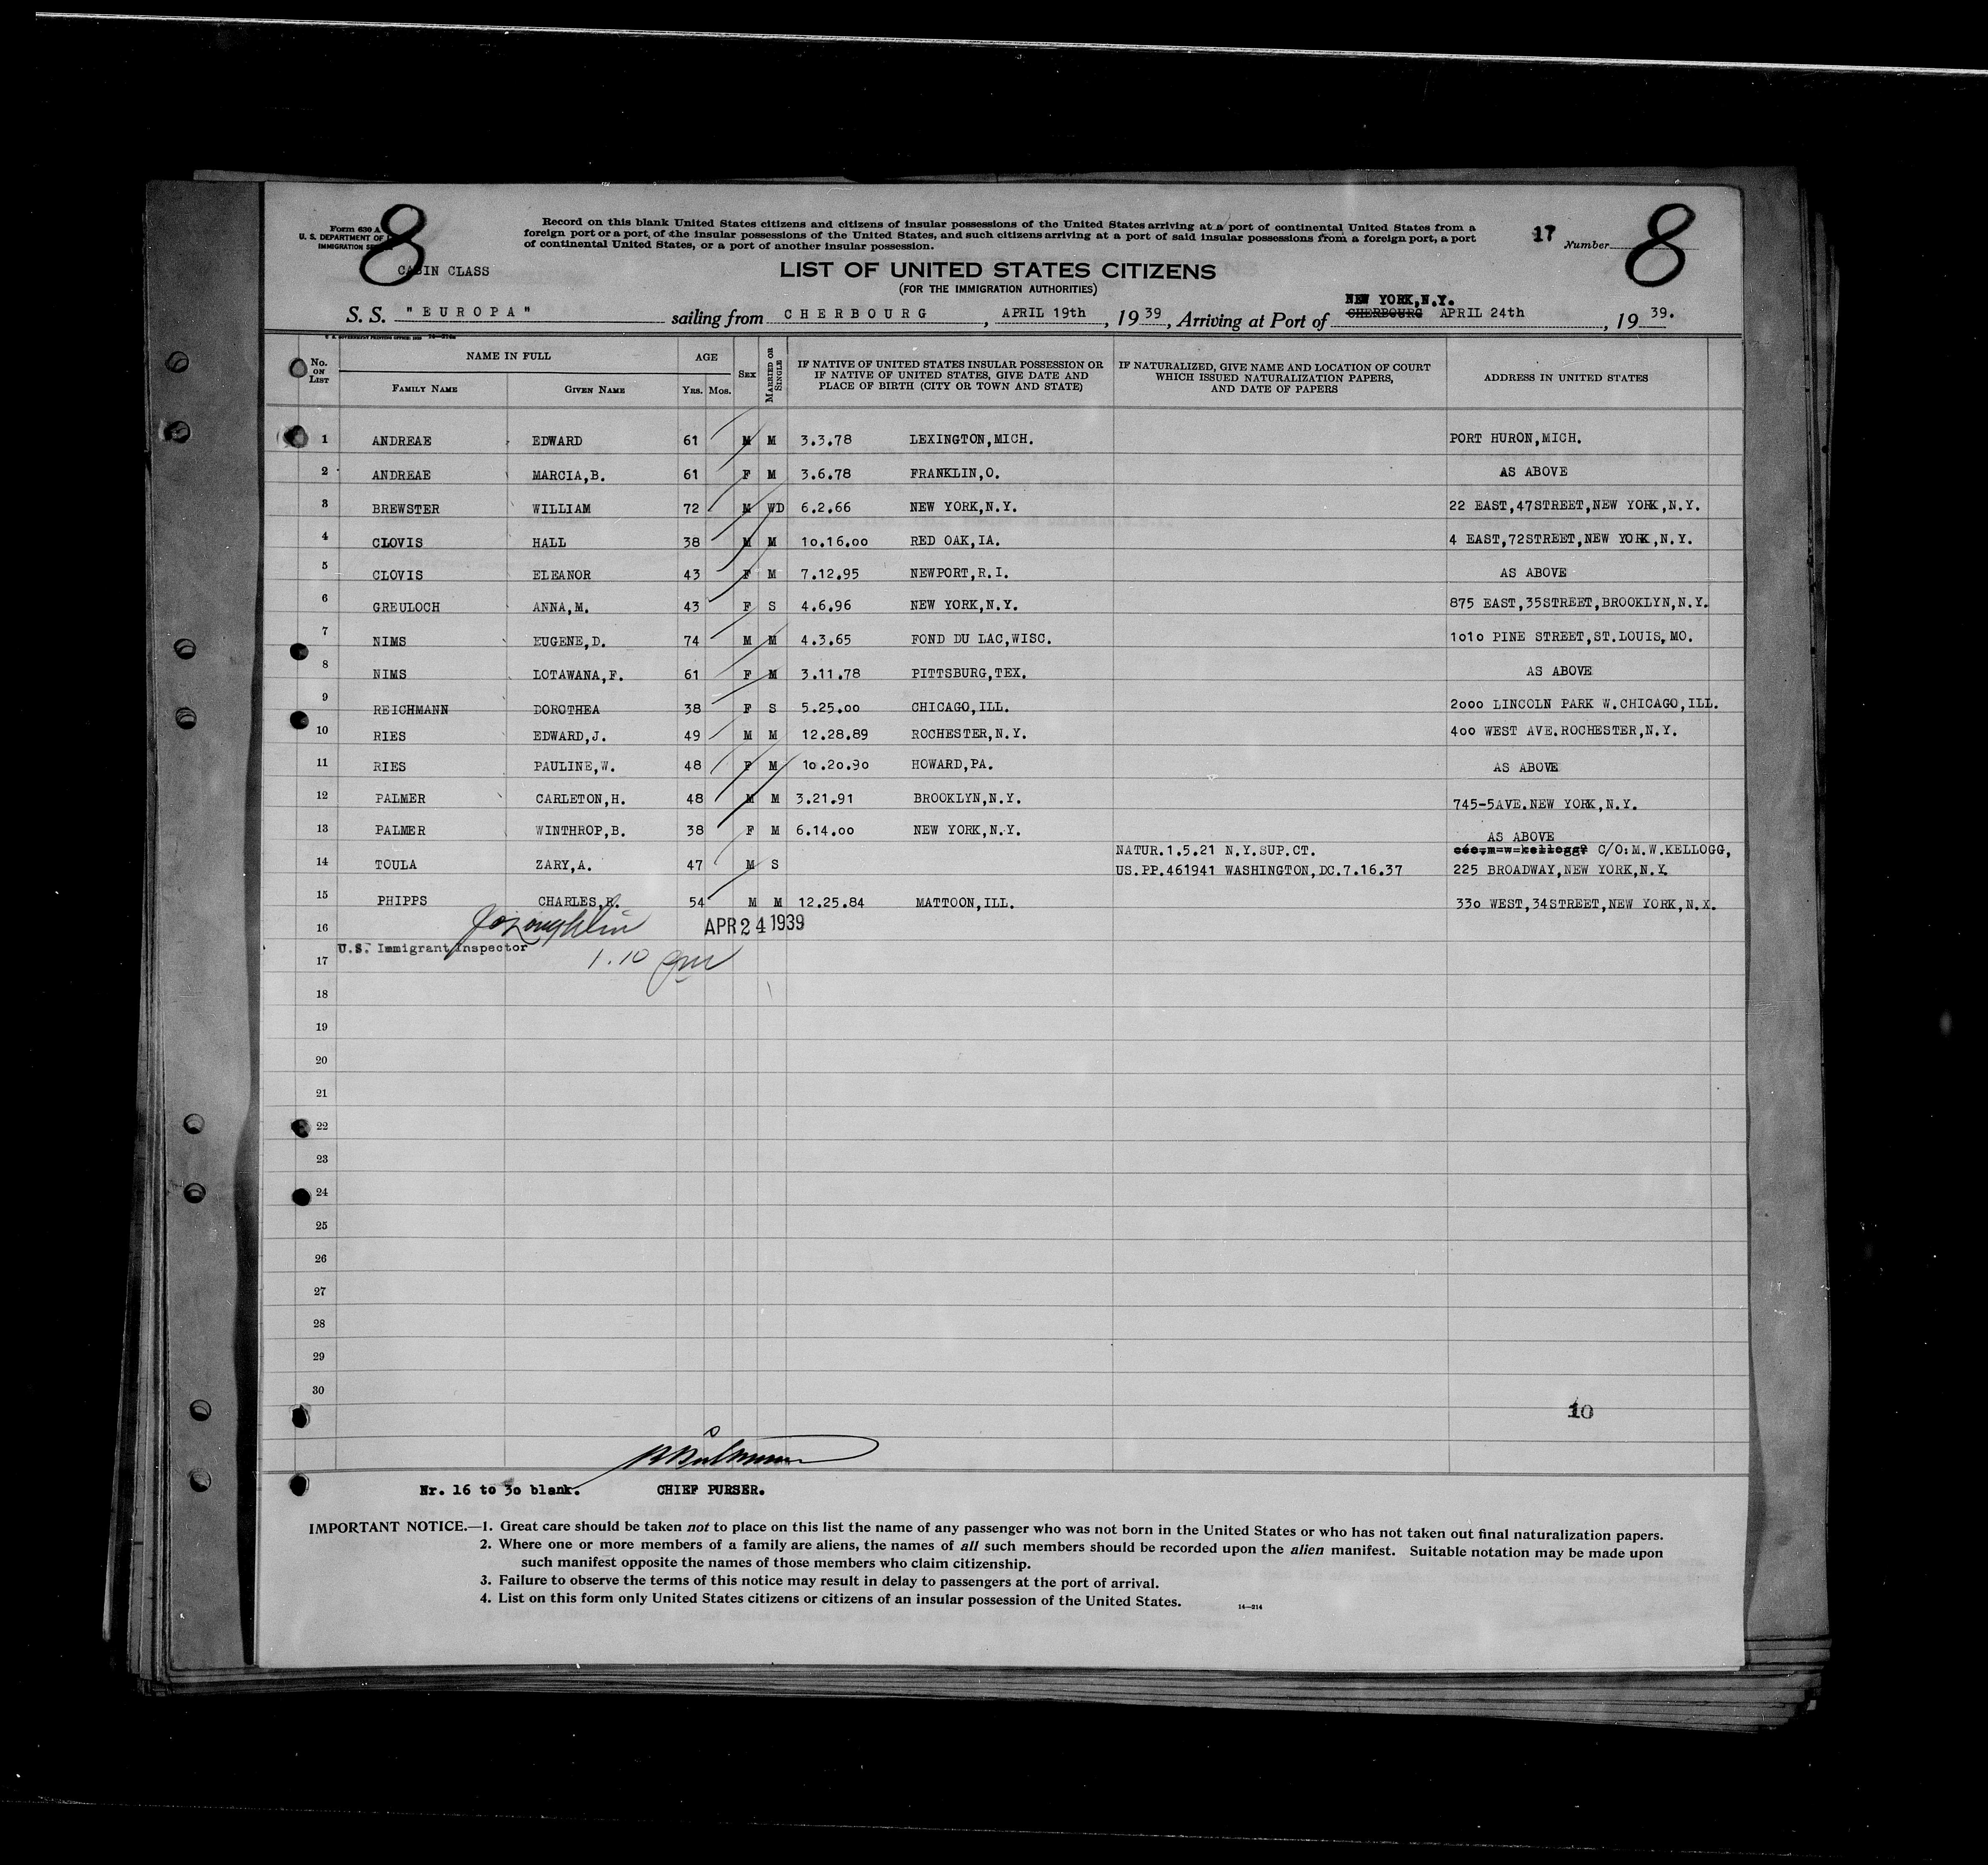 Form 630 A
U. S. DEPARTMENT OF
IMMIGRATION
8
CABIN CLASS
Record on this blank United States citizens and citizens of insular possessions of the United States arriving at a port of continental United States from a
foreign port or a port of the insular possessions of the United States, and such citizens arriving at a port of said insular possessions from a foreign port, a port
of continental United States, or a port of another insular possession.
17 Number 8
LIST OF UNITED STATES CITIZENS
(FOR THE IMMIGRATION AUTHORITIES)
NEW YORK,N.Y.
S. S. "EUROPA" sailing from CHERBOURG, APRIL 19th, 1939, Arriving at Port of CHERBOURG APRIL 24th, 1939.
No. ON LIST NAME IN FULL FAMILY NAME GIVEN NAME AGE YRS. MOS. SEX MARRIED OR SINGLE IF NATIVE OF UNITED STATES INSULAR POSSESSION OR IF NATIVE OF UNITED STATES, GIVE DATE AND PLACE OF BIRTH (CITY OR TOWN AND STATE) IF NATURALIZED, GIVE NAME AND LOCATION OF COURT WHICH ISSUED NATURALIZATION PAPERS, AND DATE OF PAPERS ADDRESS IN UNITED STATES
1 ANDREAE EDWARD 61 M M 3.3.78 LEXINGTON,MICH. PORT HURON,MICH.
2 ANDREAE MARCIA,B. 61 F M 3.6.78 FRANKLIN,O. AS ABOVE
3 BREWSTER WILLIAM 72 M WD 6.2.66 NEW YORK,N.Y. 22 EAST,47STREET,NEW YORK,N.Y.
4 CLOVIS HALL 38 M M 10.16.00 RED OAK,IA. 4 EAST,72STREET,NEW YORK,N.Y.
5 CLOVIS ELEANOR 43 F M 7.12.95 NEWPORT,R.I. AS ABOVE
6 GREULOCH ANNA,M. 43 F S 4.6.96 NEW YORK,N.Y. 875 EAST,35STREET,BROOKLYN,N.Y.
7 NIMS EUGENE,D. 74 M M 4.3.65 FOND DU LAC,WISC. 1010 PINE STREET,ST.LOUIS,MO.
8 NIMS LOTAWANA,F. 61 F M 3.11.78 PITTSBURG,TEX. AS ABOVE
9 REICHMANN DOROTHEA 38 F S 5.25.00 CHICAGO,ILL. 2000 LINCOLN PARK W.CHICAGO,ILL.
10 RIES EDWARD,J. 49 M M 12.28.89 ROCHESTER,N.Y. 400 WEST AVE.ROCHESTER,N.Y.
11 RIES PAULINE,W. 48 F M 10.20.90 HOWARD,PA. AS ABOVE
12 PALMER CARLETON,H. 48 M M 3.21.91 BROOKLYN,N.Y. 745-5AVE.NEW YORK,N.Y.
13 PALMER WINTHROP,B. 38 F M 6.14.00 NEW YORK,N.Y. AS ABOVE
NATUR.1.5.21 N.Y.SUP.CT. C/O:M.W.KELLOGG,
14 TOULA ZARY,A. 47 M S US.PP.461941 WASHINGTON,DC.7.16.37 225 BROADWAY,NEW YORK,N.Y.
15 PHIPPS CHARLES,R. 54 M M 12.25.84 MATTOON,ILL. 330 WEST,34STREET,NEW YORK,N.X.
16 APR 24 1939
U.S. Immigrant Inspector
17 1.10 pm
18
19
20
21
22
23
24
25
26
27
28
29
30
10
Nr. 16 to 30 blank. CHIEF PURSER.
IMPORTANT NOTICE.—1. Great care should be taken not to place on this list the name of any passenger who was not born in the United States or who has not taken out final naturalization papers.
2. Where one or more members of a family are aliens, the names of all such members should be recorded upon the alien manifest. Suitable notation may be made upon
such manifest opposite the names of those members who claim citizenship.
3. Failure to observe the terms of this notice may result in delay to passengers at the port of arrival.
4. List on this form only United States citizens or citizens of an insular possession of the United States. 14—214